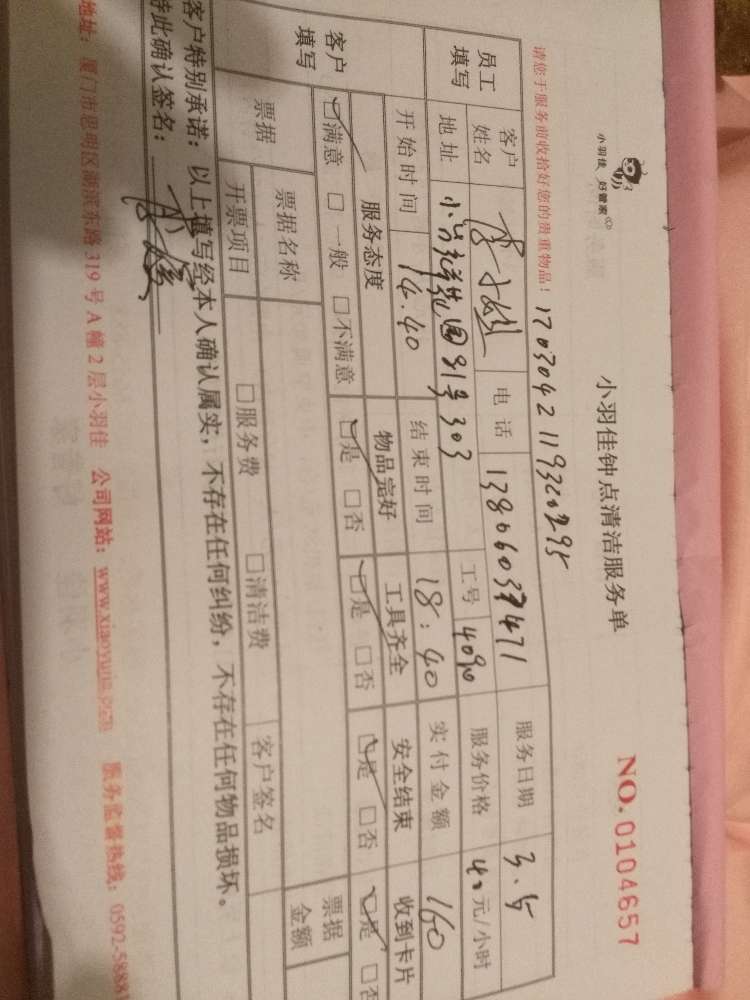 小羽佳 好管家
小羽佳钟点清洁服务单
NO. 0104657
请您于服务前收拾好您的贵重物品！ 1703042119320295
员工填写 客户姓名 李 姐 电话 13806037471 服务日期 3.5
地址 小学路花园81号303 工号 4090 服务价格 40元/小时
开始时间 14.40 结束时间 18:40 实付金额 160
客户填写 服务态度 物品完好 工具齐全 安全结束 收到卡片
☑满意 □一般 □不满意 ☑是 □否 ☑是 □否 ☑是 □否 ☑是 □否
票据 票据名称 票据金额
开票项目 □服务费 □清洁费 客户签名
客户特别承诺：以上填写经本人确认属实，不存在任何纠纷，不存在任何物品损坏。
特此确认签名：
地址：厦门市思明区湖滨东路319号A幢2层小羽佳 公司网站：www.xiaoyujia.com 服务监督热线：0592-5888